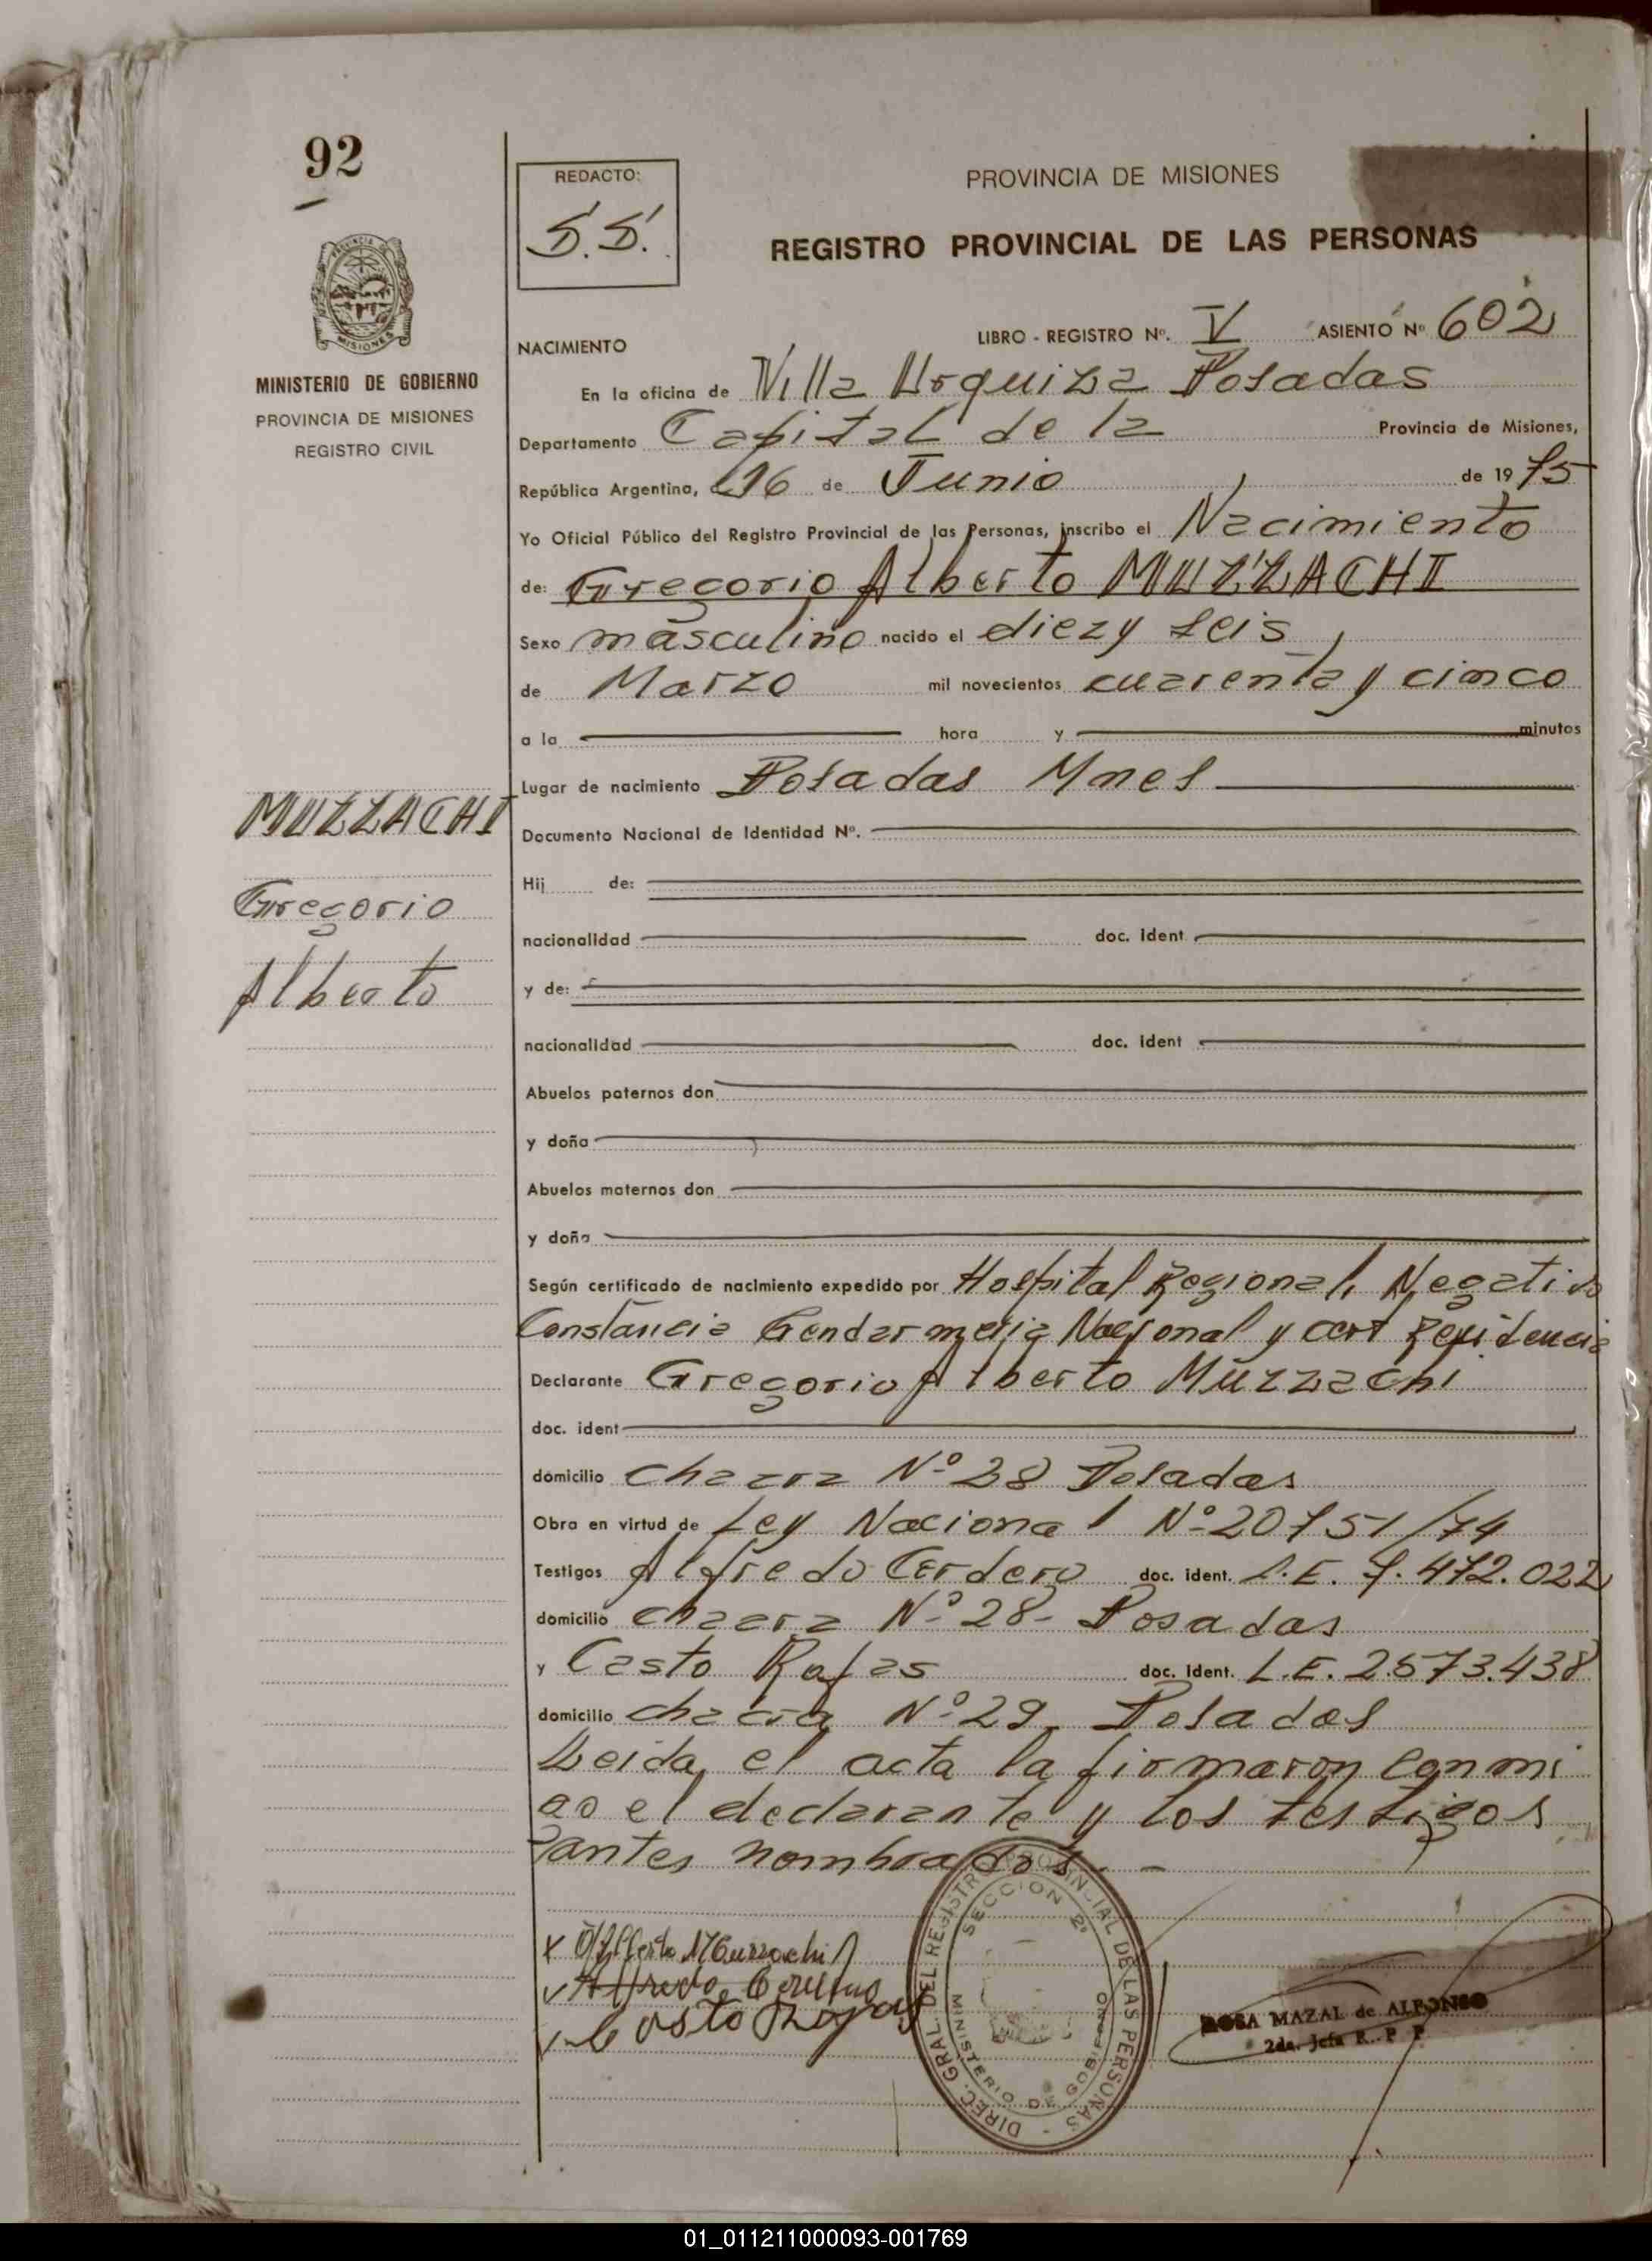 92
REDACTO:
S.S.
PROVINCIA DE MISIONES
REGISTRO PROVINCIAL DE LAS PERSONAS
PROVINCIA DE
MISIONES
MINISTERIO DE GOBIERNO
PROVINCIA DE MISIONES
REGISTRO CIVIL
NACIMIENTO
LIBRO - REGISTRO Nº. V ASIENTO Nº 602
En la oficina de Villa Urquiza Posadas
Departamento Capital de la Provincia de Misiones,
República Argentina, a 16 de Junio de 1975
Yo Oficial Público del Registro Provincial de las Personas, inscribo el Nacimiento
de: Gregorio Alberto MUZZACHI
Sexo masculino nacido el diez y seis,
de Marzo mil novecientos cuarenta y cinco
a la hora y minutos
Lugar de nacimiento Posadas Mnes
MUZZACHI
Gregorio
Alberto
Documento Nacional de Identidad Nº.
Hij de:
nacionalidad doc. ident
y de:
nacionalidad doc. ident
Abuelos paternos don
y doña
Abuelos maternos don
y doña
Según certificado de nacimiento expedido por Hospital Regional, Negativo
Constancia Gendarmeria Nacional y cert Residencia
Declarante Gregorio Alberto Muzzachi
doc. ident
domicilio chacra Nº 28 Posadas
Obra en virtud de Ley Nacional Nº 20751/74
Testigos Alfredo Cordero doc. ident. L.E. 7.472.022
domicilio chacra Nº 28- Posadas
y Casto Rojas doc. ident. L.E. 2.573.438
domicilio chacra Nº 29, Posadas
Leida, el acta la firmaron conmi
go el declarante y los testigos
antes nombrados. -
x Alberto Muzzachi
Alfredo
Casto Rojas
DIREC. GRAL. DEL REGISTRO PROVINCIAL DE LAS PERSONAS
SECCION 2ª
MINISTERIO DE GOBIERNO
ROSA MAZAL de ALFONSO
2da. Jefa R. P. P.
01_011211000093-001769